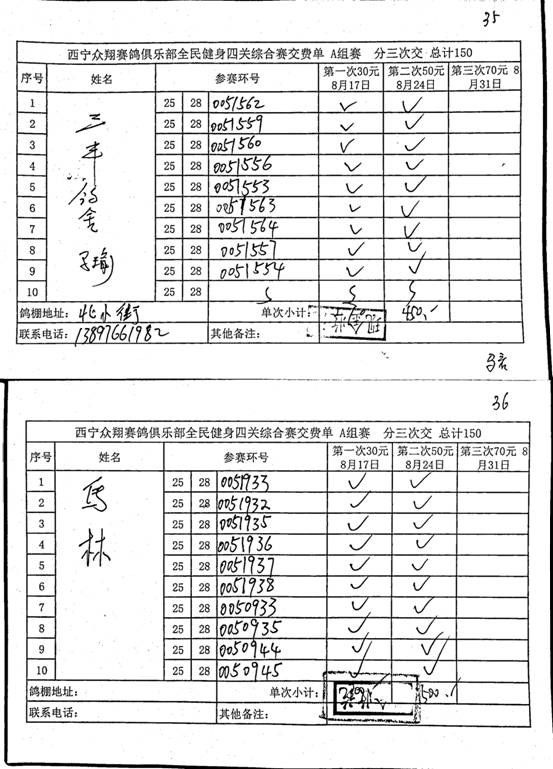 35
西宁众翔赛鸽俱乐部全民健身四关综合赛交费单 A组赛 分三次交 总计150
序号 姓名 参赛环号 第一次30元 8月17日 第二次50元 8月24日 第三次70元 8月31日
三丰鸽舍
1 25 28 0051562 ✓ ✓
2 25 28 0051559 ✓ ✓
3 25 28 0051560 ✓ ✓
4 25 28 0051556 ✓ ✓
5 25 28 0051553 ✓ ✓
6 25 28 0051563 ✓ ✓
7 25 28 0051564 ✓ ✓
8 25 28 0051557 ✓ ✓
9 25 28 0051554 ✓ ✓
10 25 28
鸽棚地址: 北小街 单次小计: 450.-
联系电话: 13897661982 其他备注:
36
西宁众翔赛鸽俱乐部全民健身四关综合赛交费单 A组赛 分三次交 总计150
序号 姓名 参赛环号 第一次30元 8月17日 第二次50元 8月24日 第三次70元 8月31日
马林
1 25 28 0051933 ✓ ✓
2 25 28 0051932 ✓ ✓
3 25 28 0051935 ✓ ✓
4 25 28 0051936 ✓ ✓
5 25 28 0051937 ✓ ✓
6 25 28 0051938 ✓ ✓
7 25 28 0050933 ✓ ✓
8 25 28 0050935 ✓ ✓
9 25 28 0050944 ✓ ✓
10 25 28 0050945 ✓ ✓
鸽棚地址: 单次小计: 500.-
联系电话: 其他备注: